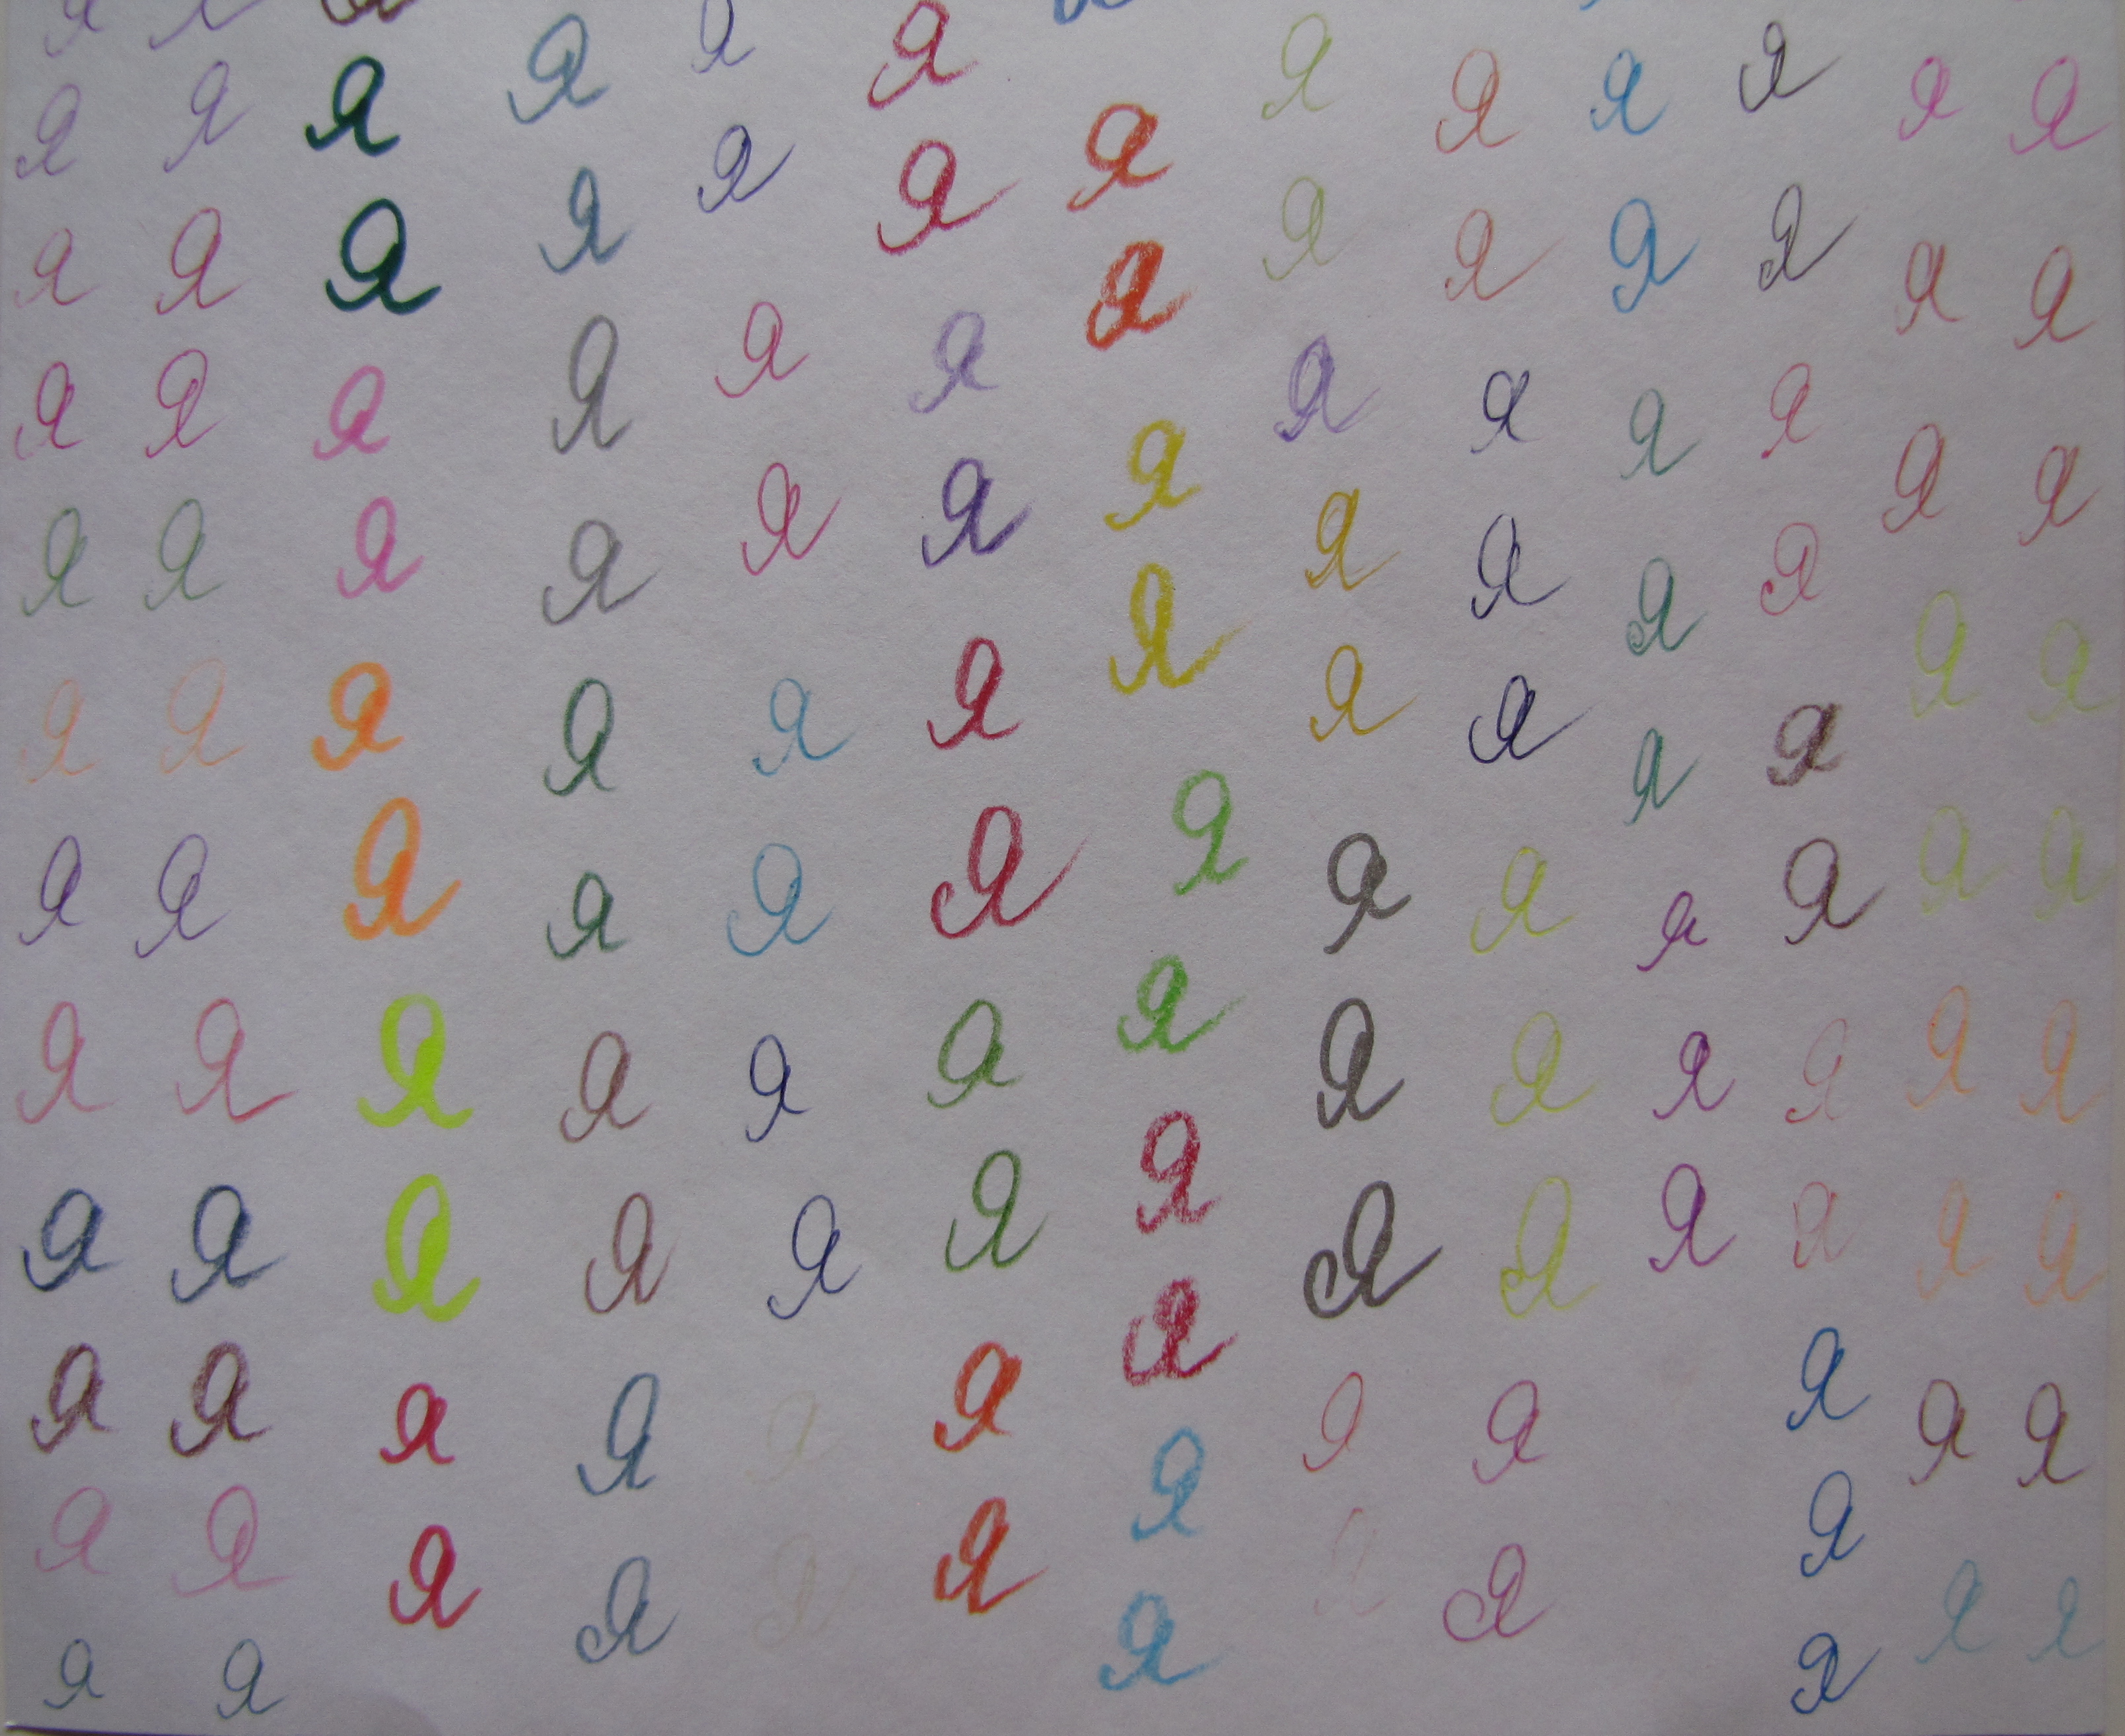 я я я я я я я я я я я я я
я я я я я я я я я я я я я
я я я я я я я я я я я я я
я я я я я я я я я я я я я
я я я я я я я я я я я я я
я я я я я я я я я я я я я
я я я я я я я я я я я я я
я я я я я я я я я я я я я
я я я я я я я я я я я я
я я я я я я я я я я
я я я